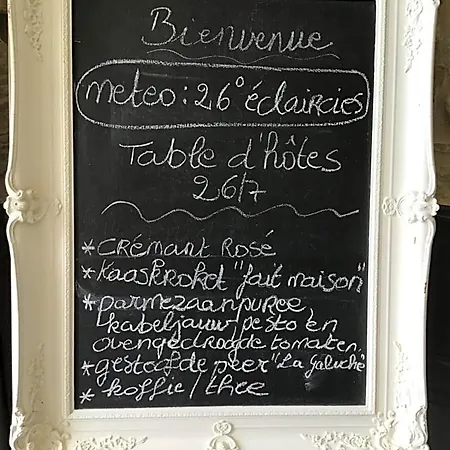 Bienvenue
meteo: 26° éclaircies
Table d'hôtes
26/7
* CRÉMANT ROSÉ
* Kaaskroket "fait maison"
* parmezaanpuree,
kabeljauw/pesto en
ovengedroogde tomaten.
* gestoofde peer "La Galuche"
* koffie/thee